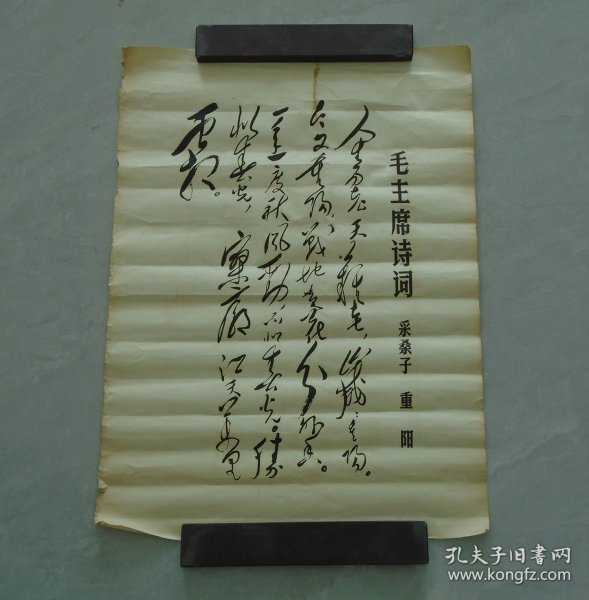 毛主席诗词 采桑子 重阳
人生易老天難老，歲々重陽。
今又重陽，戰地黄花分外香。
一年一度秋風勁，不似春光。勝
似春光，寥廓江天萬里
霜。
孔夫子旧书网
www.kongfz.com